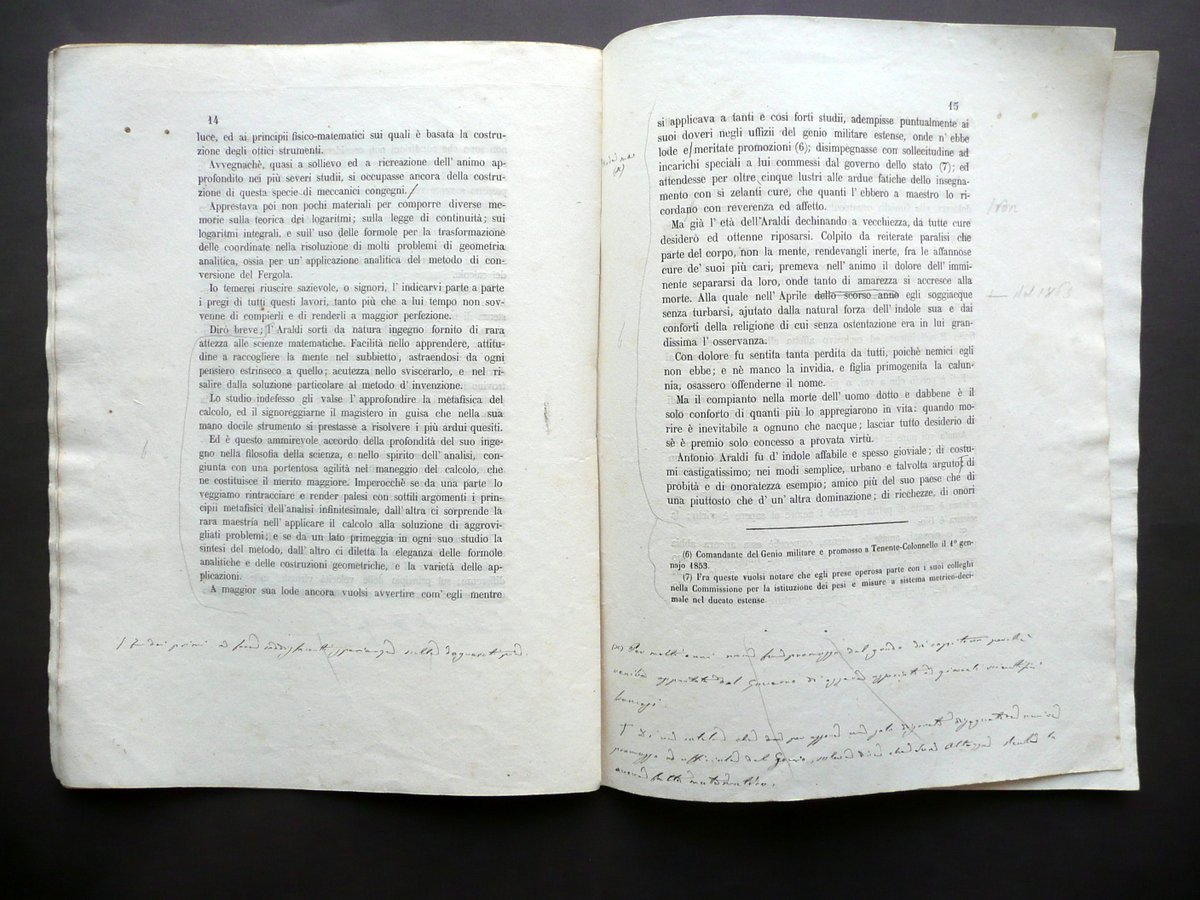 14
luce, ed ai principii fisico-matematici sui quali è basata la costru-
zione degli ottici strumenti.
Avvegnachè, quasi a sollievo ed a ricreazione dell' animo ap-
profondito nei più severi studii, si occupasse ancora della costru-
zione di questa specie di meccanici congegni.
Apprestava poi non pochi materiali per comporre diverse me-
morie sulla teorica dei logaritmi; sulla legge di continuità; sui
logaritmi integrali, e sull' uso delle formole per la trasformazione
delle coordinate nella risoluzione di molti problemi di geometria
analitica, ossia per un' applicazione analitica del metodo di con-
versione del Fergola.
Io temerei riuscire sazievole, o signori, l' indicarvi parte a parte
i pregi di tutti questi lavori, tanto più che a lui tempo non sov-
venne di compierli e di renderli a maggior perfezione.
Dirò breve; l' Araldi sortì da natura ingegno fornito di rara
attezza alle scienze matematiche. Facilità nello apprendere, attitu-
dine a raccogliere la mente nel subbietto, astraendosi da ogni
pensiero estrinseco a quello; acutezza nello sviscerarlo, e nel ri-
salire dalla soluzione particolare al metodo d' invenzione.
Lo studio indefesso gli valse l' approfondire la metafisica del
calcolo, ed il signoreggiarne il magistero in guisa che nella sua
mano docile strumento si prestasse a risolvere i più ardui quesiti.
Ed è questo ammirevole accordo della profondità del suo inge-
gno nella filosofia della scienza, e nello spirito dell' analisi, con-
giunta con una portentosa agilità nel maneggio del calcolo, che
ne costituisce il merito maggiore. Imperocchè se da una parte lo
veggiamo rintracciare e render palesi con sottili argomenti i prin-
cipii metafisici dell' analisi infinitesimale, dall' altra ci sorprende la
rara maestria nell' applicare il calcolo alla soluzione di aggrovi-
gliati problemi; e se da un lato primeggia in ogni suo studio la
sintesi del metodo, dall' altro ci diletta la eleganza delle formole
analitiche e delle costruzioni geometriche, e la varietà delle ap-
plicazioni.
A maggior sua lode ancora vuolsi avvertire com' egli mentre
15
si applicava a tanti e così forti studii, adempisse puntualmente ai
suoi doveri negli uffizii del genio militare estense, onde n' ebbe
lode e meritate promozioni (6); disimpegnasse con sollecitudine ad
incarichi speciali a lui commessi dal governo dello stato (7); ed
attendesse per oltre cinque lustri alle ardue fatiche dell' insegna-
mento con sì zelanti cure, che quanti l' ebbero a maestro lo ri-
cordano con reverenza ed affetto.
Ma già l' età dell'Araldi dechinando a vecchiezza, da tutte cure
desiderò ed ottenne riposarsi. Colpito da reiterate paralisi che
parte del corpo, non la mente, rendevangli inerte, fra le affannose
cure de' suoi più cari, premeva nell' animo il dolore dell' immi-
nente separarsi da loro, onde tanto di amarezza si accresce alla
morte. Alla quale nell' Aprile dello scorso anno egli soggiacque
senza turbarsi, ajutato dalla natural forza dell' indole sua e dai
conforti della religione di cui senza ostentazione era in lui gran-
dissima l' osservanza.
Con dolore fu sentita tanta perdita da tutti, poichè nemici egli
non ebbe; e nè manco la invidia, e figlia primogenita la calun-
nia, osassero offenderne il nome.
Ma il compianto nella morte dell' uomo dotto e dabbene è il
solo conforto di quanti più lo appregiarono in vita: quando mo-
rire è inevitabile a ognuno che nacque; lasciar tutto desiderio di
sè è premio solo concesso a provata virtù.
Antonio Araldi fu d' indole affabile e spesso gioviale; di costu-
mi castigatissimo; nei modi semplice, urbano e talvolta arguto; di
probità e di onoratezza esempio; amico più del suo paese che di
una piuttosto che d' un' altra dominazione; di ricchezze, di onori
(6) Comandante del Genio militare e promosso a Tenente-Colonnello il 1º gen-
najo 1853.
(7) Fra queste vuolsi notare che egli prese operosa parte con i suoi colleghi
nella Commissione per la istituzione dei pesi e misure a sistema metrico-deci-
male nel ducato estense.